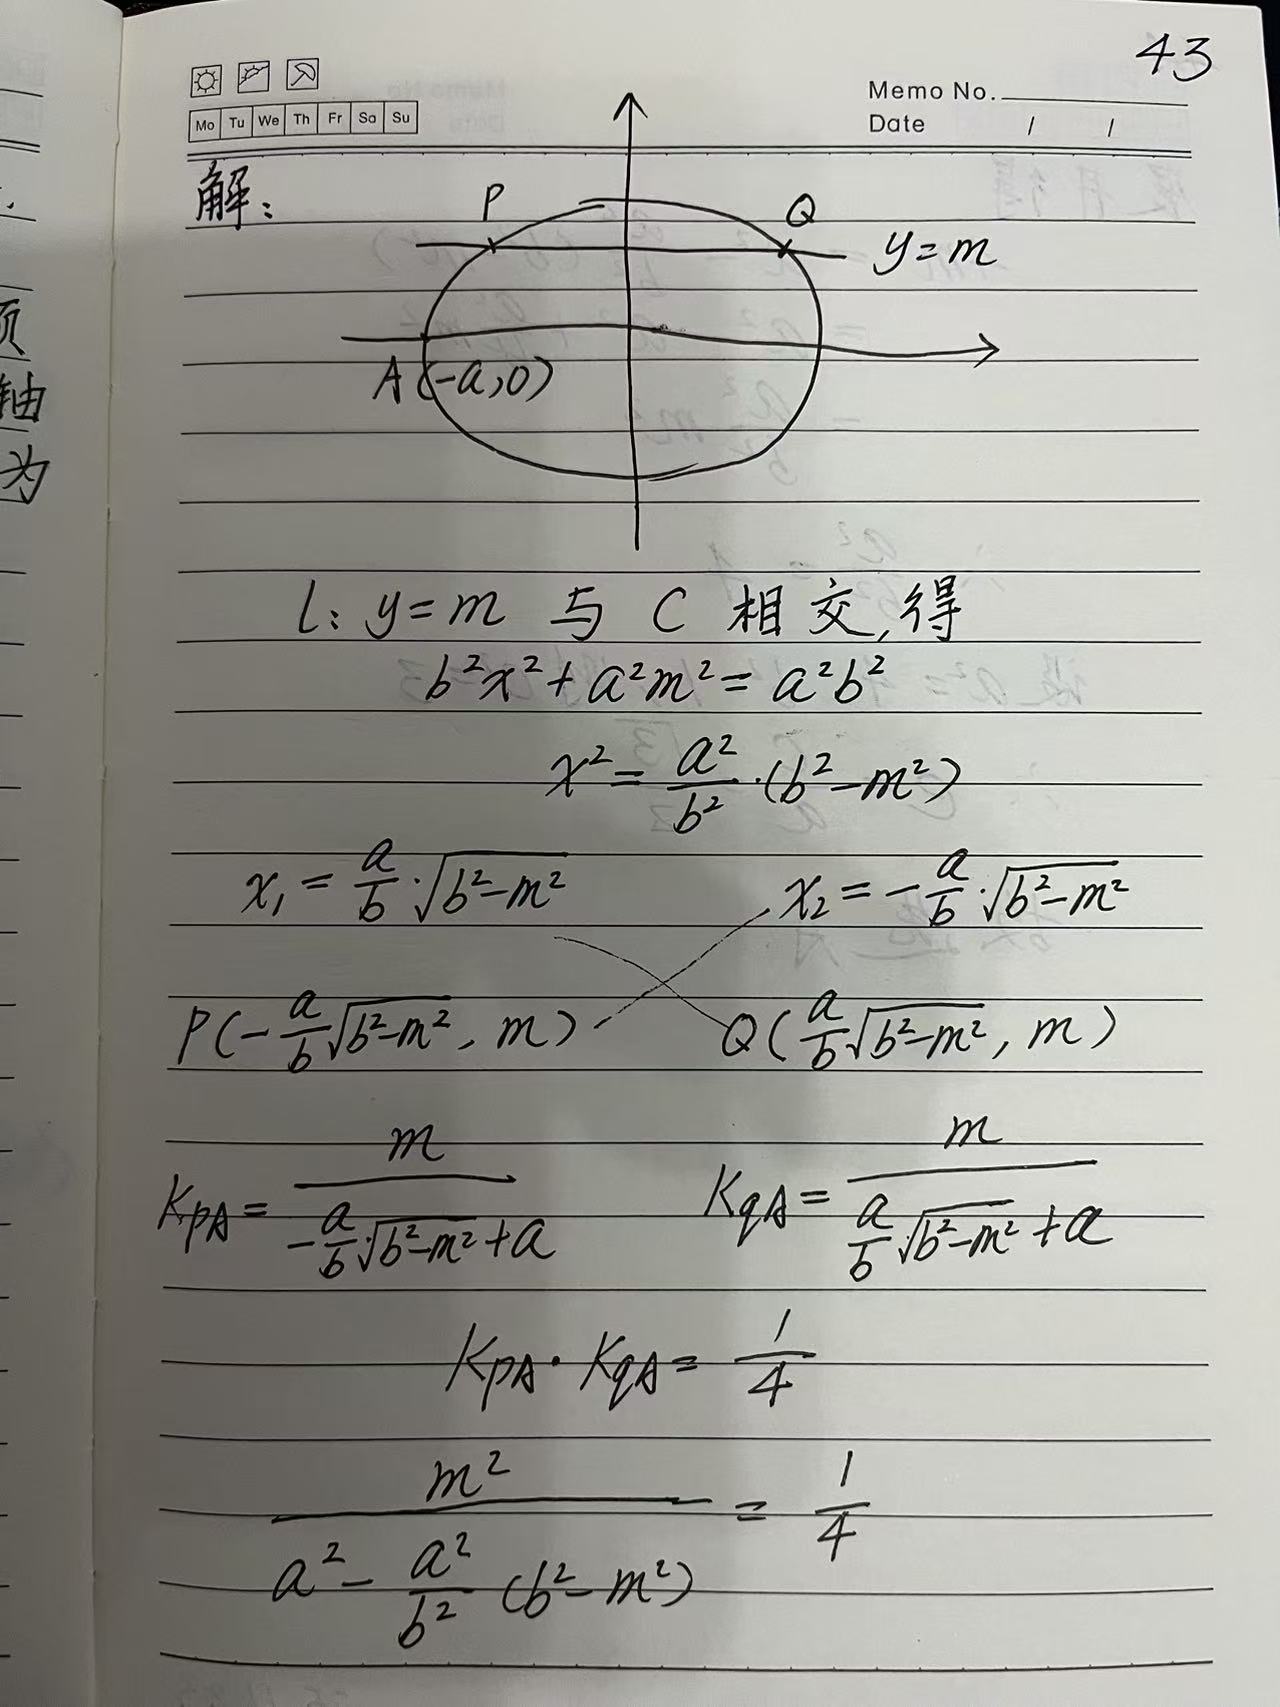 43
Memo No.
Mo Tu We Th Fr Sa Su
Date / /
解:
P Q
y=m
A(-a,0)
l: y=m 与 C 相交,得
b²x²+a²m²=a²b²
x²=a²/b²·(b²-m²)
x₁=a/b·√(b²-m²) x₂=-a/b·√(b²-m²)
P(-a/b√(b²-m²), m) Q(a/b√(b²-m²), m)
K_PA=m/(-a/b·√(b²-m²)+a) K_qA=m/(a/b·√(b²-m²)+a)
K_PA·K_qA=1/4
m²/(a²-a²/b²(b²-m²))=1/4
顶
轴
为